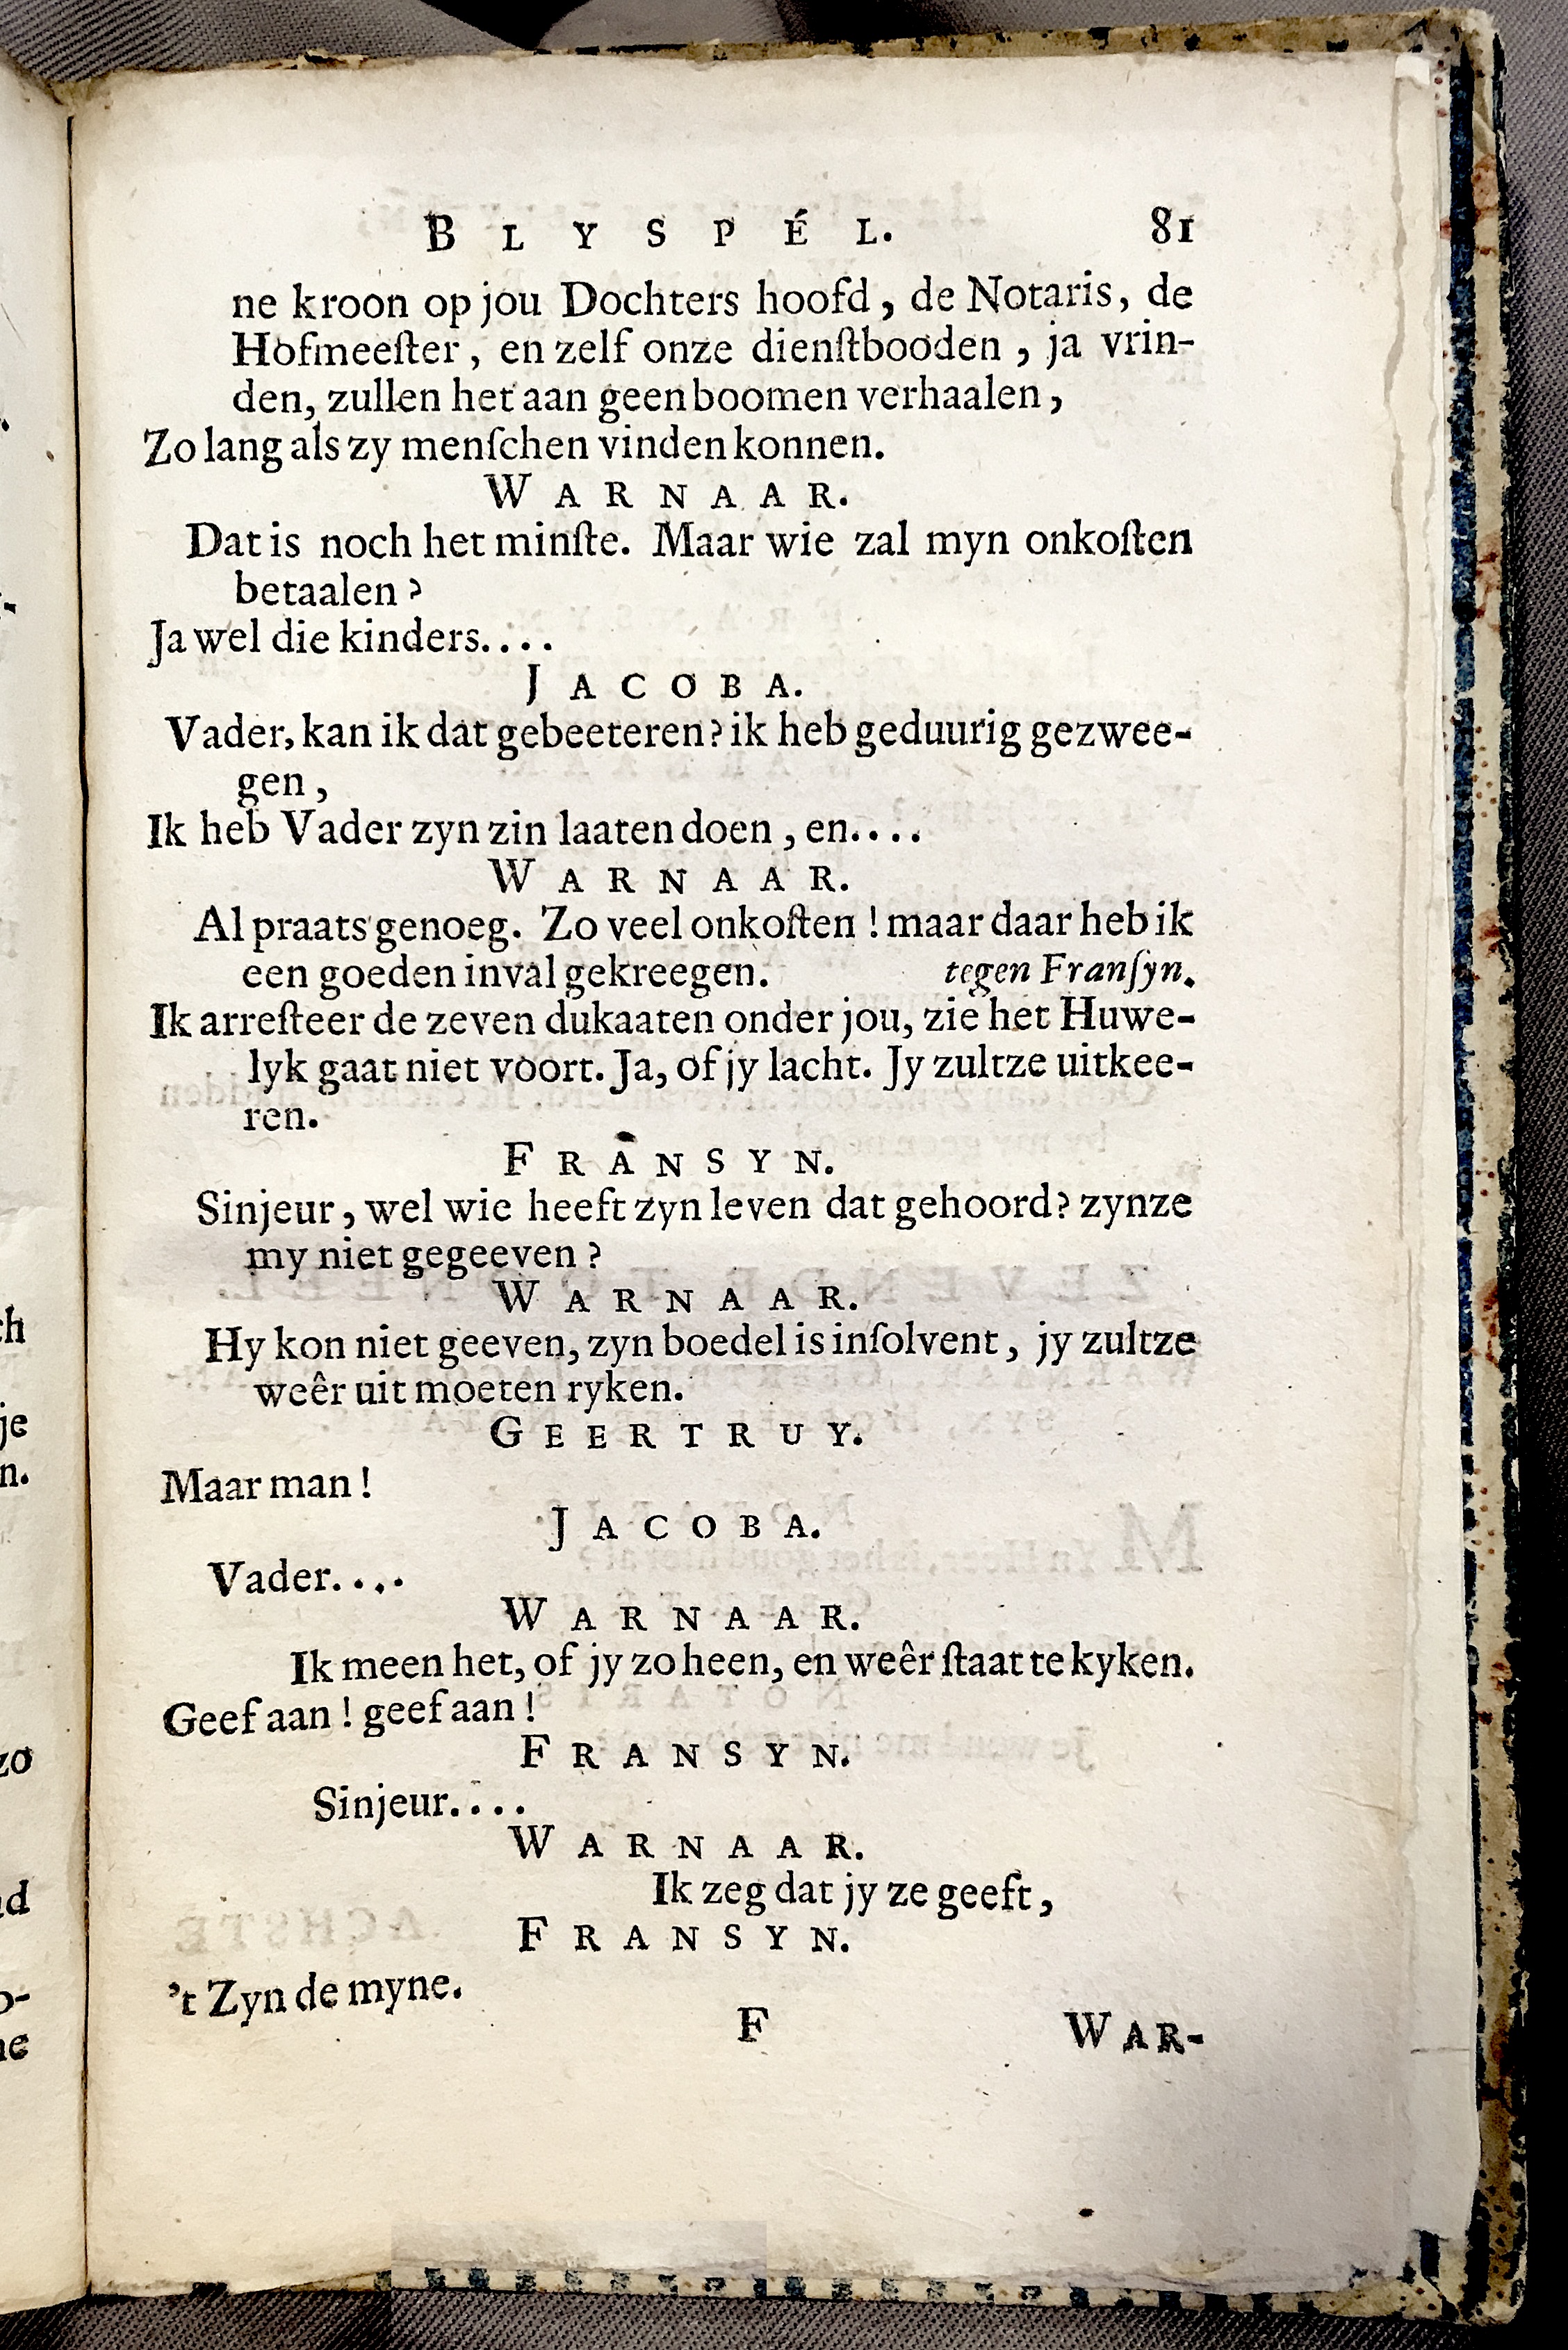 BLYSPÉL. 81
ne kroon op jou Dochters hoofd, de Notaris, de
Hofmeeſter, en zelf onze dienſtbooden, ja vrin-
den, zullen het aan geen boomen verhaalen,
Zo lang als zy menſchen vinden konnen.
WARNAAR.
Dat is noch het minſte. Maar wie zal myn onkoſten
betaalen?
Ja wel die kinders....
JACOBA.
Vader, kan ik dat gebeeteren? ik heb geduurig gezwee-
gen,
Ik heb Vader zyn zin laaten doen, en....
WARNAAR.
Al praats genoeg. Zo veel onkoſten! maar daar heb ik
een goeden inval gekreegen. tegen Franſyn.
Ik arreſteer de zeven dukaaten onder jou, zie het Huwe-
lyk gaat niet voort. Ja, of jy lacht. Jy zultze uitkee-
ren.
FRANSYN.
Sinjeur, wel wie heeft zyn leven dat gehoord? zynze
my niet gegeeven?
WARNAAR.
Hy kon niet geeven, zyn boedel is inſolvent, jy zultze
weêr uit moeten ryken.
GEERTRUY.
Maar man!
JACOBA.
Vader....
WARNAAR.
Ik meen het, of jy zo heen, en weêr ſtaat te kyken.
Geef aan! geef aan!
FRANSYN.
Sinjeur....
WARNAAR.
Ik zeg dat jy ze geeft,
FRANSYN.
't Zyn de myne.
F WAR-